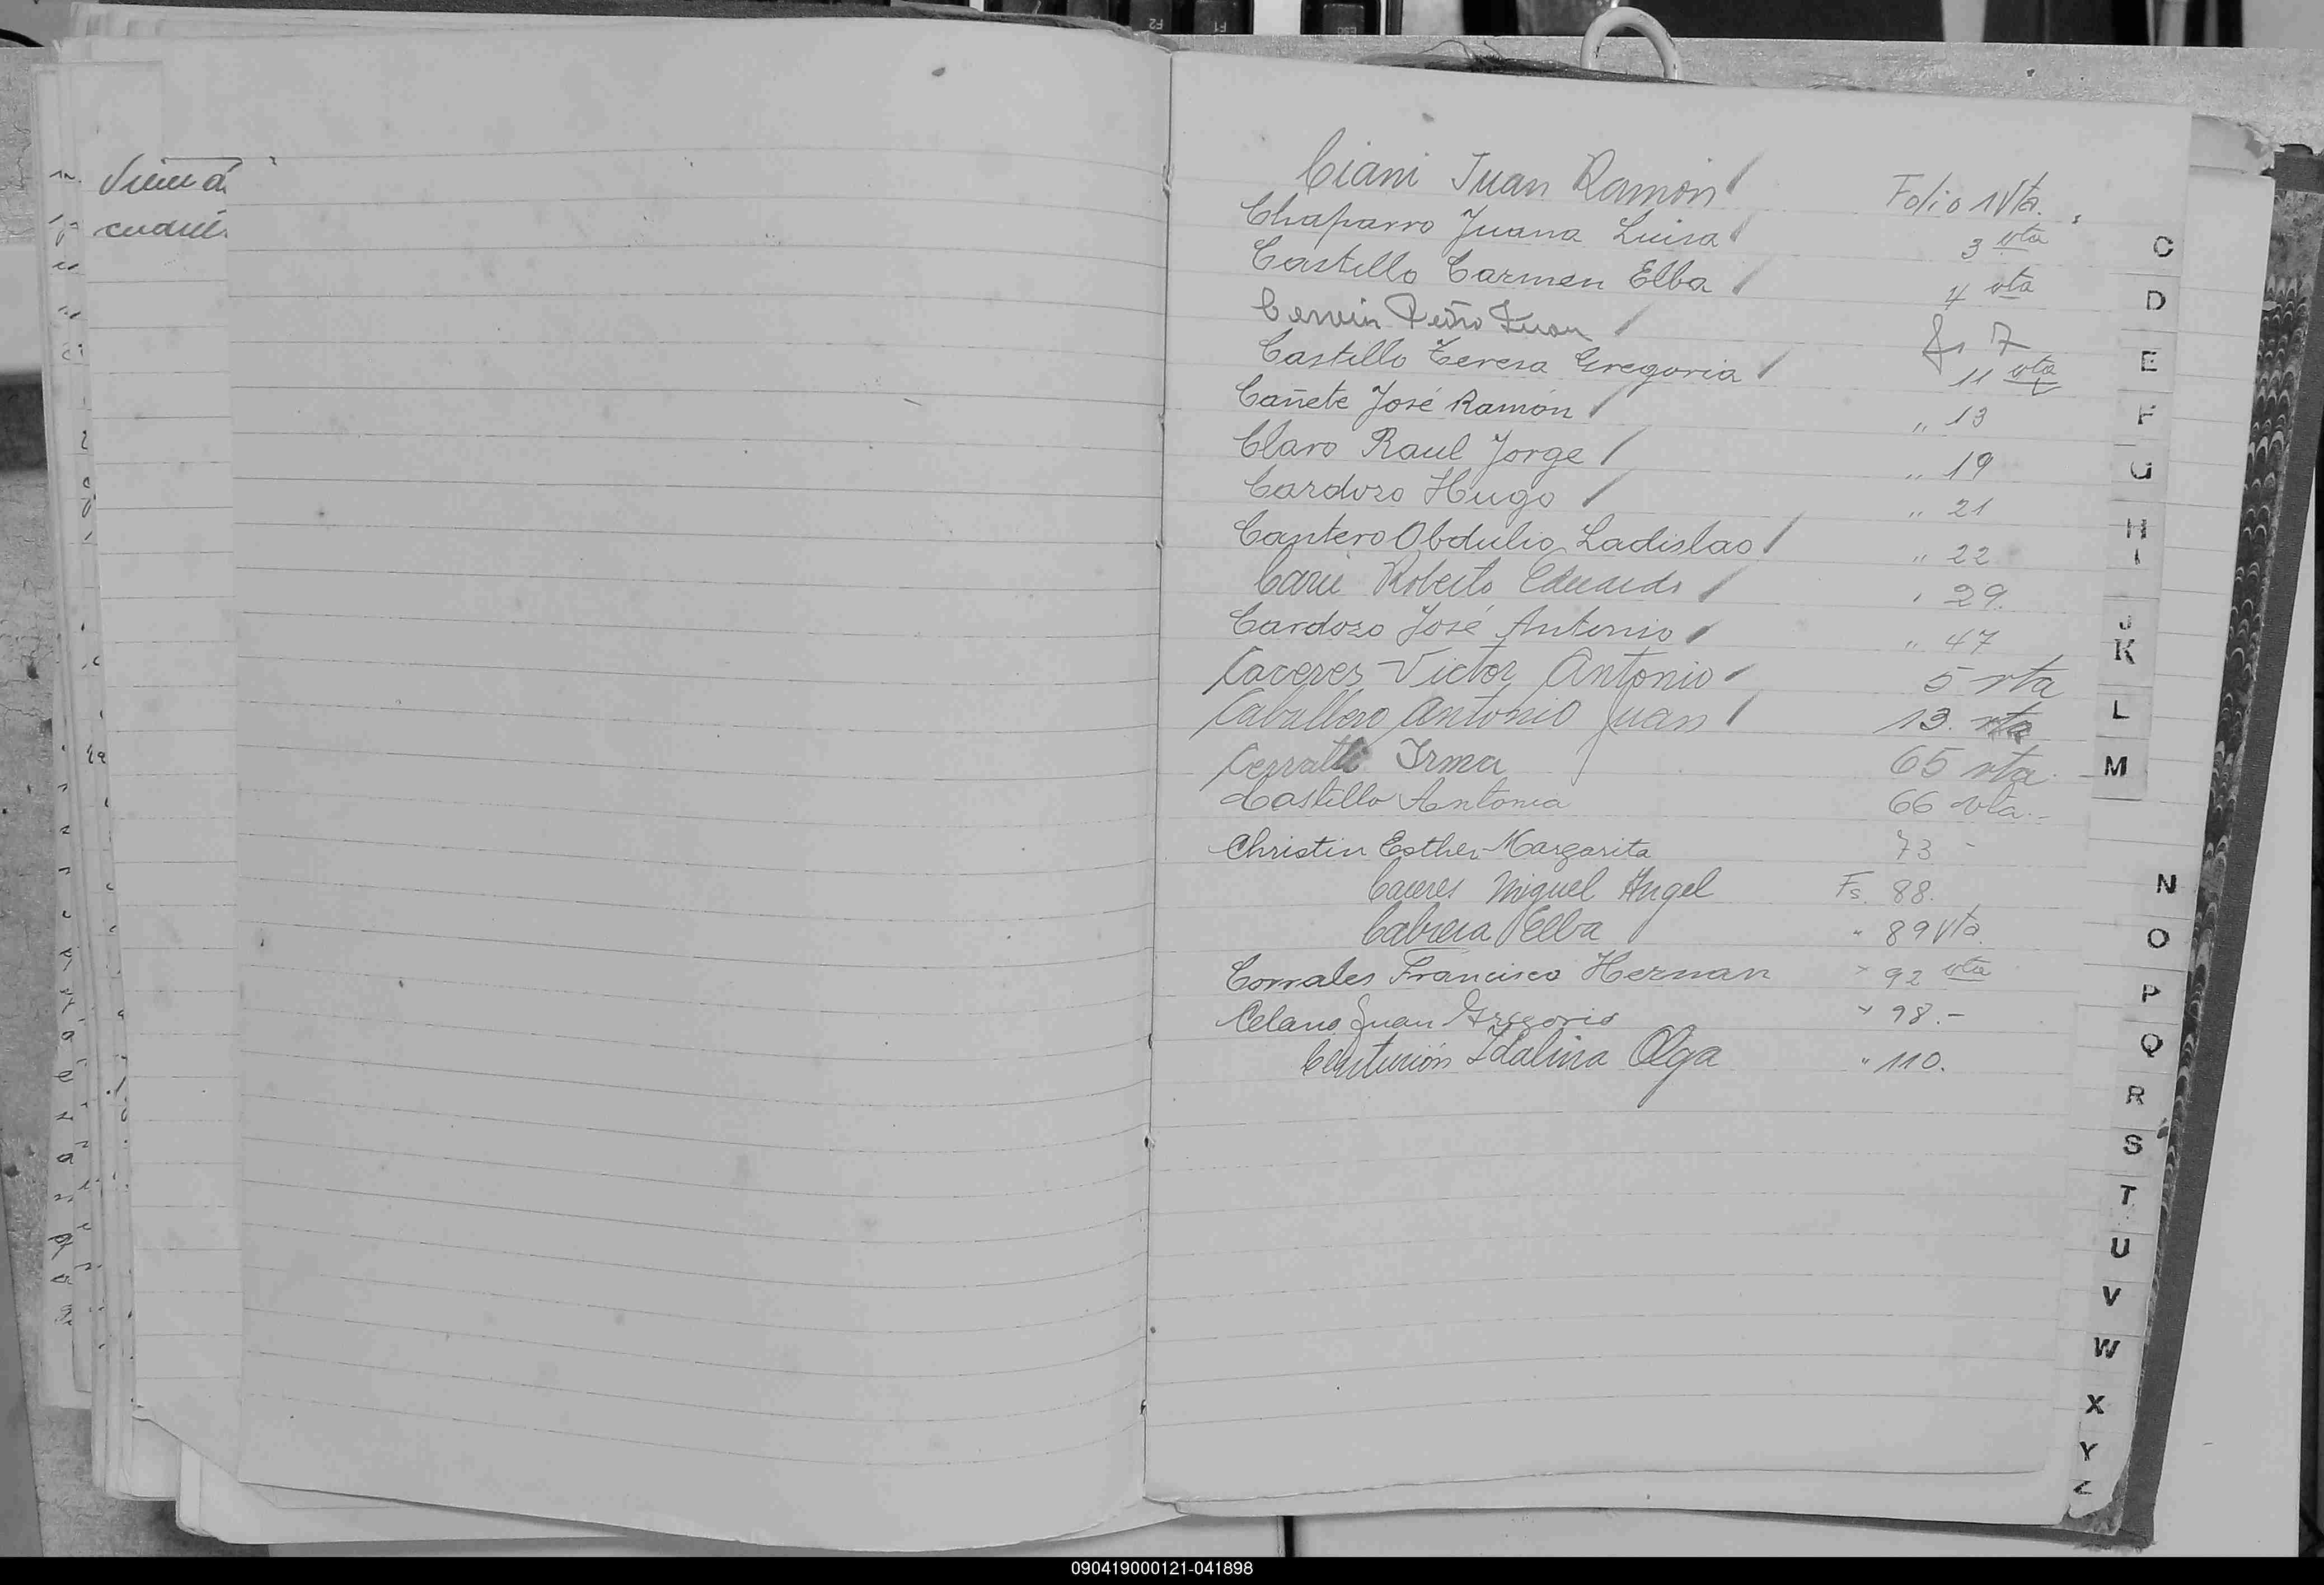 Ciani Juan Ramón Folio 1 Vta.
Chaparro Juana Luisa 3 vta
Castillo Carmen Elba 4 vta
Pedro Juan fs 7
Castillo Teresa Gregoria 11 vta
Cañete José Ramón " 13
Claro Raul Jorge " 19
Cardozo Hugo " 21
Cantero Obdulio Ladislao " 22
Roberto Eduardo " 29.
Cardozo José Antonio " 47
Caceres Victor Antonio 5 vta
Caballero Antonio Juan 13. vta
Irma 65 vta.
Castillo Antonia 66 vta.-
Christin Esther Margarita 73 -
Caceres Miguel Angel Fs. 88.
Cabrera Elba " 89 Vta.
Corrales Francisco Hernan " 92 vta
Celano Juan Gregorio " 98.-
Centurión Idalina Olga " 110.
C
D
E
F
G
H
I
J
K
L
M
N
O
P
Q
R
S
T
U
V
W
X
Y
Z
090419000121-041898